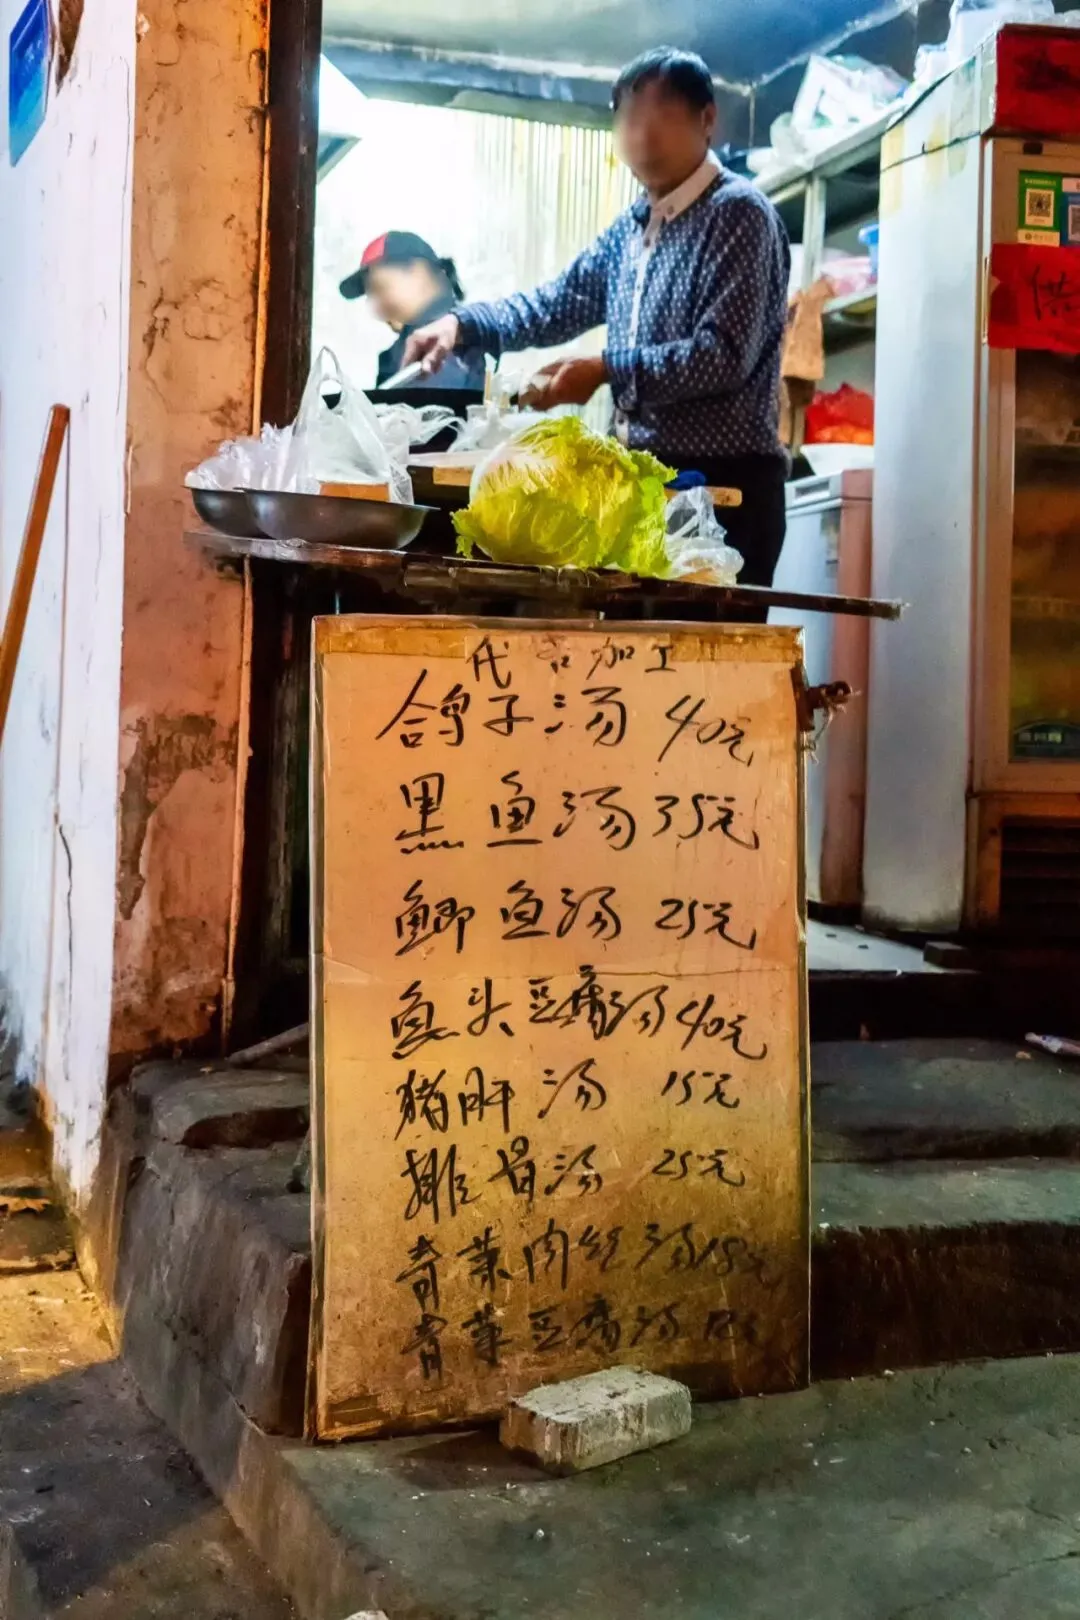 代客加工
鸽子汤 40元
黑鱼汤 35元
鲫鱼汤 25元
鱼头豆腐汤 40元
猪肝汤 15元
排骨汤 25元
青菜肉丝汤 18元
青菜豆腐汤
供